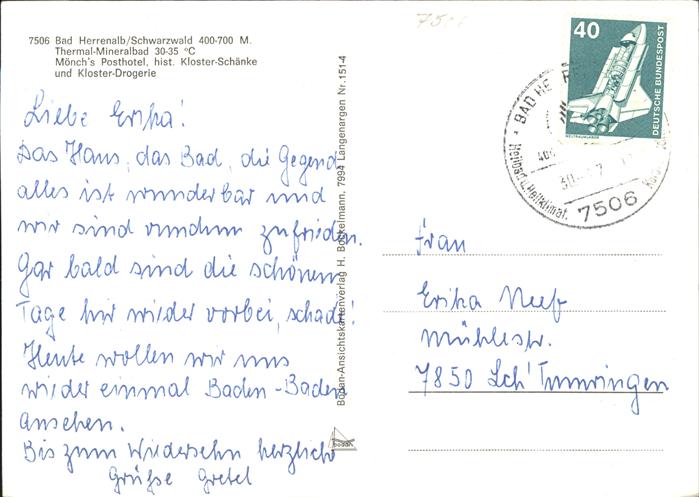 7506 Bad Herrenalb/Schwarzwald 400-700 M.
Thermal-Mineralbad 30-35 °C
Mönch's Posthotel, hist. Kloster-Schänke
und Kloster-Drogerie
Liebe Erika!
Das Haus, das Bad, die Gegend
alles ist wunderbar und
wir sind rundum zufrieden.
Gar bald sind die schönen
Tage hir wieder vorbei, schade!
Heute wollen wir uns
wieder einmal Baden-Baden
ansehen.
Bis zum Wiedersehn herzliche
Grüße Gretel
Bodan-Ansichtskartenverlag H. Bockelmann, 7994 Langenargen Nr. 151-4
bodan
750
40
DEUTSCHE BUNDESPOST
WELTRAUMLABOR
BAD HE
Heilbad u. Heilklimat.
7506
Frau
Erika Neef
Mühlestr.
7850 Lch' Tumringen